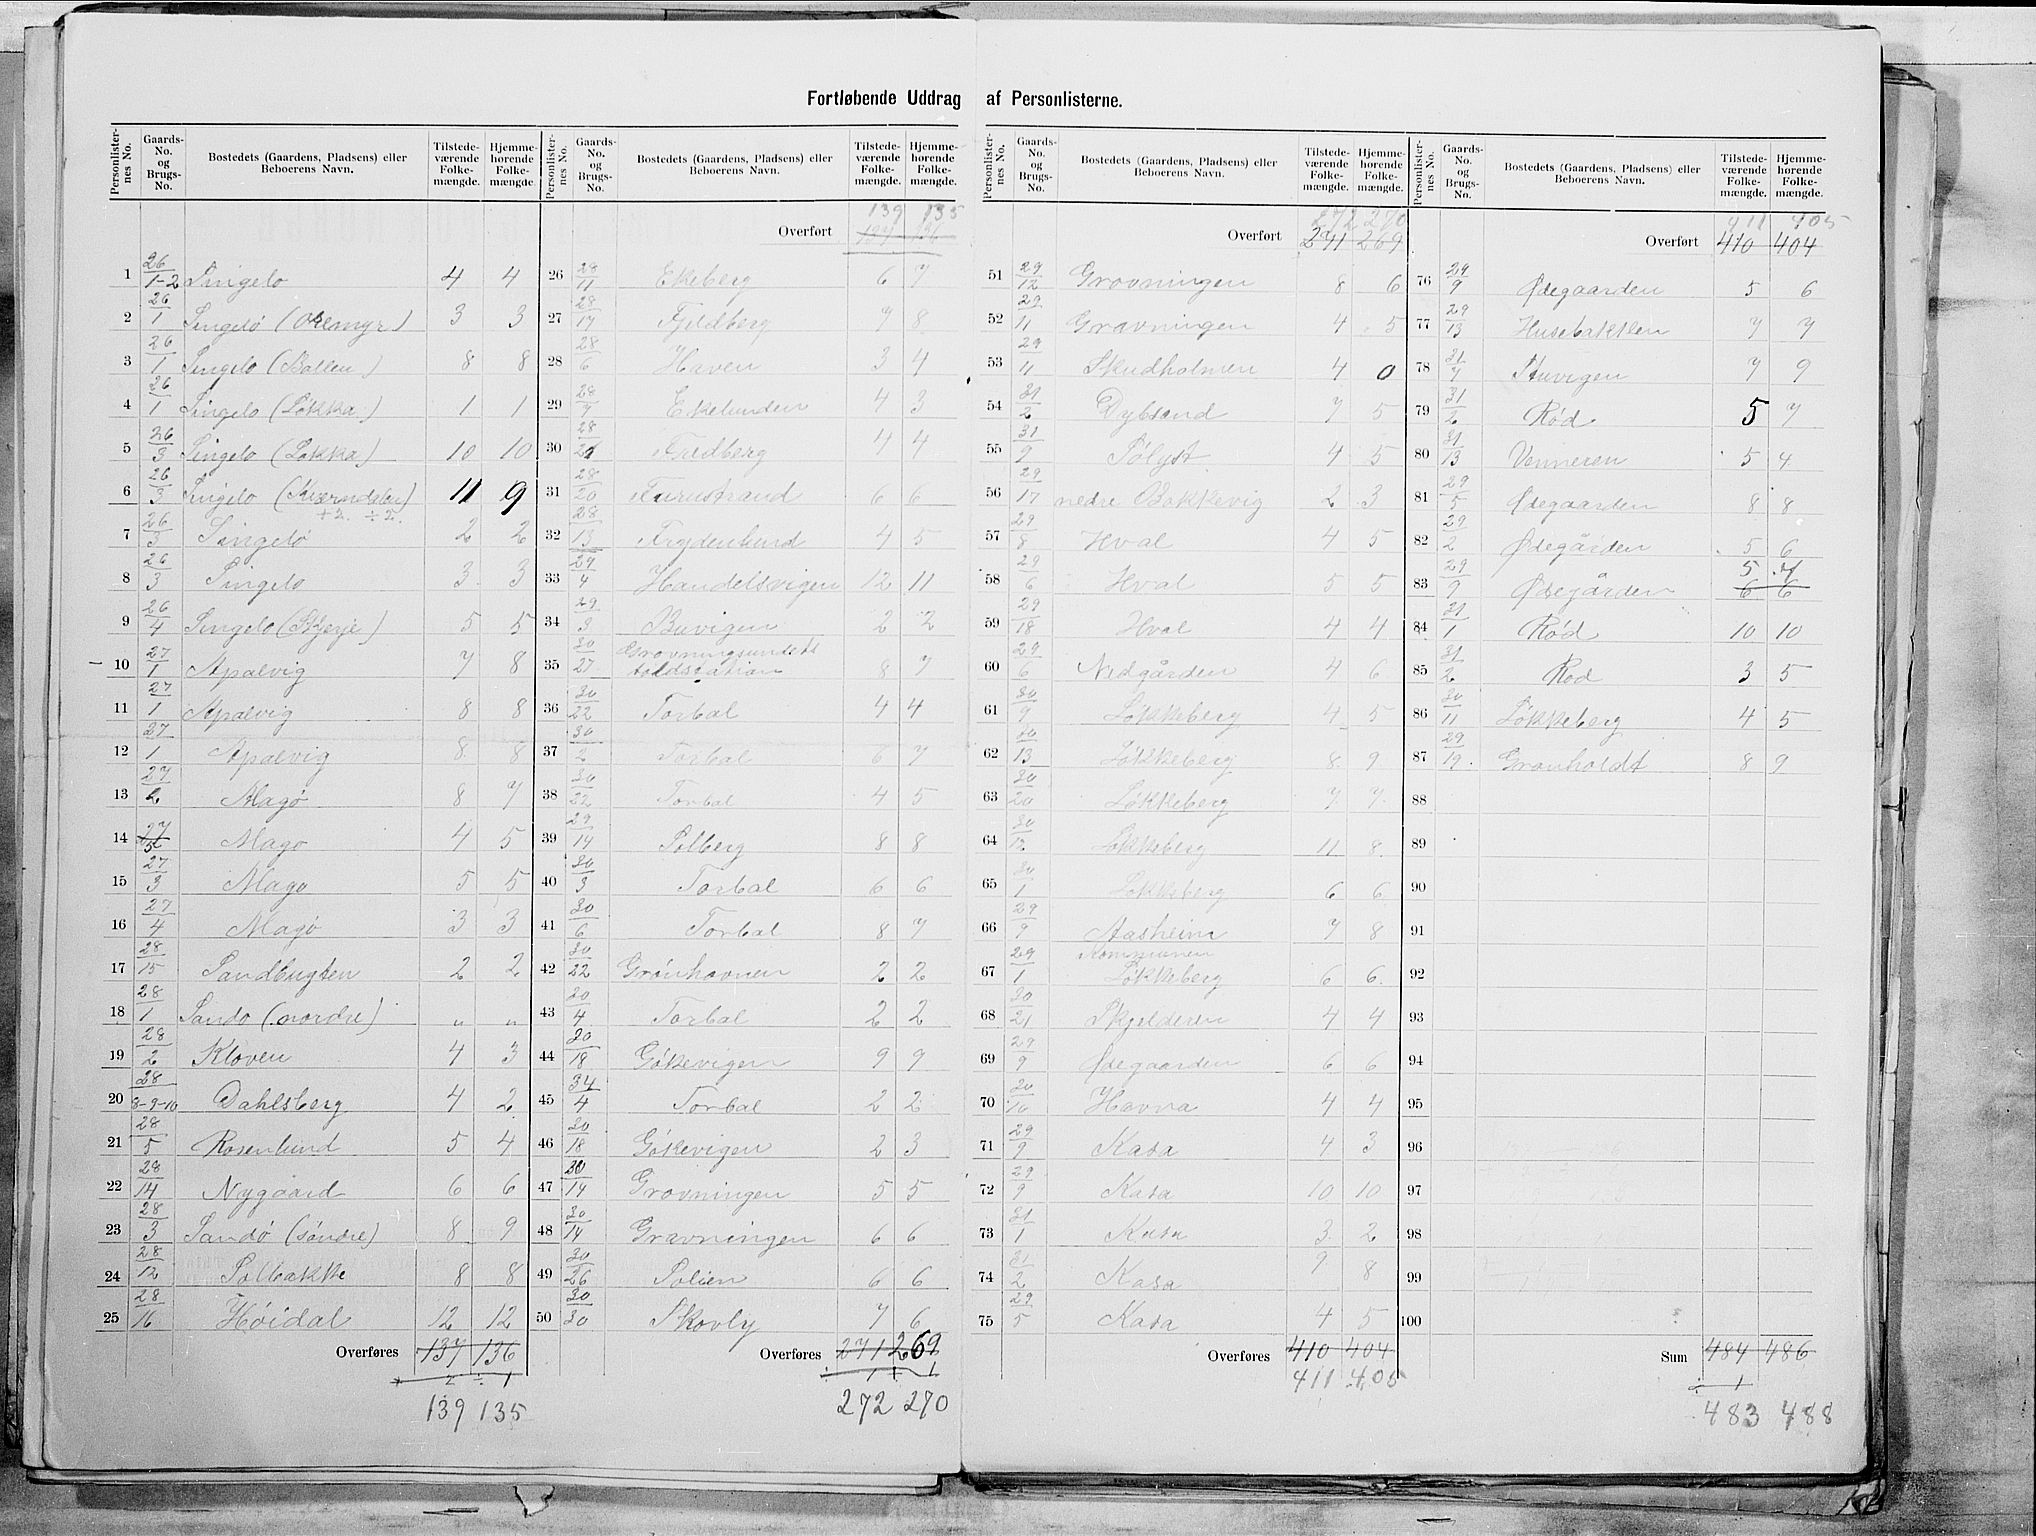 Fortløbende Uddrag af Personlisterne.
Personlisternes No. | Gaards-No. og Brugs-No. | Bostedets (Gaardens, Pladsens) eller Beboerens Navn. | Tilstedeværende Folkemængde. | Hjemmehørende Folkemængde.
1 26/1-2 Singelo 4 4
2 26/1 Singelö (Oremyr) 3 3
3 26/1 Singelo (Bollen) 8 8
4 26/1 Singelo (Løkka) 1 1
5 26/3 Singelo (Løkka) 10 10
6 26/3 Singelo (Kværndalen) 11 9
+2. ÷2.
7 26/3 Singelö 2 2
8 26/3 Singelo 3 3
9 26/4 Singelo (Skjerje) 5 5
10 27/1 Apalvig 7 8
11 27/1 Apalvig 8 8
12 27/1 Apalvig 8 8
13 27/2 Magö 8 7
14 27/5 Mago 4 5
15 27/3 Mago 5 5
16 27/4 Magö 3 3
17 28/15 Sandbugten 2 2
18 28/1 Sando (nordre) " "
19 28/2 Kloven 4 3
20 28/8-9-10 Dahlsberg 4 2
21 28/5 Rosenlund 5 4
22 28/14 Nygaard 6 6
23 28/3 Sandö (söndre) 8 9
24 28/12 Solbakke 8 8
25 28/16 Höidal 12 12
Overføres 137 136
+ 2 ÷ 1
139 135
Personlisternes No. | Gaards-No. og Brugs-No. | Bostedets (Gaardens, Pladsens) eller Beboerens Navn. | Tilstedeværende Folkemængde. | Hjemmehørende Folkemængde.
139 135
Overført 137 136
26 28/11 Ekeberg 6 7
27 28/17 Fjeldberg 7 8
28 28/6 Haven 3 4
29 28/7 Ekelunden 4 3
30 28/21 Fredberg 4 4
31 28/20 Furustrand 6 6
32 28/13 Frydenlund 4 5
33 29/4 Handelsvigen 12 11
34 29/3 Buvigen 2 2
35 30/27 Grovningsundets toldstation 8 7
36 30/22 Torbal 4 4
37 30/2 Torbal 6 7
38 30/22 Torbal 4 5
39 29/14 Solberg 8 8
40 30/3 Torbal 6 6
41 30/6 Torbal 8 7
42 30/22 Grönhavnen 2 2
43 30/4 Torbal 2 2
44 30/18 Gökevigen 9 9
45 34/4 Torbal 2 2
46 30/18 Gökevigen 2 3
47 30/14 Grovningen 5 5
48 30/14 Gravningen 6 6
49 30/26 Solien 6 6
50 30/30 Skovly 7 6
Overføres 271 269
1 + 1
272 270
Personlisternes No. | Gaards-No. og Brugs-No. | Bostedets (Gaardens, Pladsens) eller Beboerens Navn. | Tilstedeværende Folkemængde. | Hjemmehørende Folkemængde.
272 270
Overført 271 269
51 29/12 Grovningen 8 6
52 29/11 Gravningen 4 5
53 29/11 Skudholmen 4 0
54 31/2 Dybsand 7 5
55 31/9 Sölyst 4 5
56 29/17 nedre Bakkevig 2 3
57 29/8 Hval 4 5
58 29/6 Hval 5 5
59 29/18 Hval 4 4
60 29/6 Nedgården 4 6
61 30/9 Løkkeberg 4 5
62 30/13 Løkkeberg 8 9
63 30/20 Løkkeberg 7 7
64 30/12 Løkkeberg 11 8
65 30/1 Løkkeberg 6 6
66 29/9 Aasheim 7 8
67 29/1 Kommunen Løkkeberg 6 6
68 30/21 Skjelderen 4 4
69 29/9 Ødegaarden 6 6
70 30/10 Havna 4 4
71 29/9 Kasa 4 3
72 29/9 Kasa 10 10
73 31/1 Kasa 3 2
74 31/2 Kasa 9 8
75 29/5 Kasa 4 5
Overføres 410 404
411 405
Personlisternes No. | Gaards-No. og Brugs-No. | Bostedets (Gaardens, Pladsens) eller Beboerens Navn. | Tilstedeværende Folkemængde. | Hjemmehørende Folkemængde.
411 405
Overført 410 404
76 29/9 Ødegaarden 5 6
77 29/13 Husebakken 7 7
78 31/7 Stuvigen 7 9
79 31/2 Rød 5 7
80 31/13 Venneren 5 4
81 29/5 Ødegaarden 8 8
82 29/2 Ødegården 5 6
5 7
83 29/9 Ødegården 6 6
84 31/1 Rød 10 10
85 31/2 Rod 3 5
86 30/11 Løkkeberg 4 5
87 29/19 Granholdt 8 9
88
89
90
91
92
93
94
95
96
97
98
99
100
Sum 484 486
÷ 1
483 488